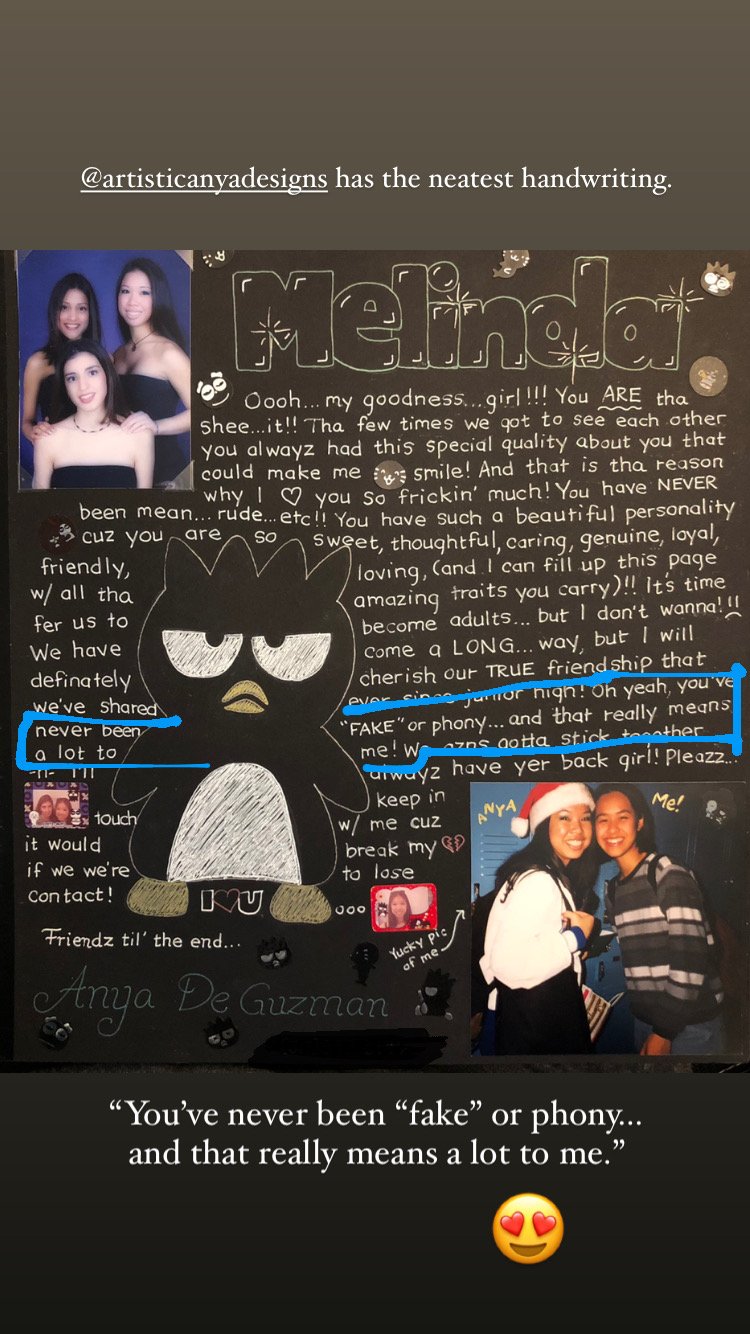 @artisticanyadesigns has the neatest handwriting.
Melinda
Oooh... my goodness...girl!!! You ARE tha
shee...it!! Tha few times we got to see each other
you alwayz had this special quality about you that
could make me smile! And that is tha reason
why I ♡ you so frickin' much! You have NEVER
been mean... rude...etc!! You have such a beautiful personality
cuz you are so sweet, thoughtful, caring, genuine, loyal,
friendly, loving, (and I can fill up this page
w/ all tha amazing traits you carry)!! It's time
fer us to become adults... but I don't wanna!!!
We have come a LONG... way, but I will
definately cherish our TRUE friendship that
we've shared ever since junior high! Oh yeah, you've
never been "FAKE" or phony... and that really means
a lot to me! We azns gotta stick together
-n- I'll alwayz have yer back girl! Pleazz...
keep in
touch w/ me cuz
it would break my 💔
if we we're to lose
contact! I ♡ U ooo
Friendz til' the end...
Yucky pic
of me
ANYA
Me!
Anya De Guzman
“You’ve never been “fake” or phony...
and that really means a lot to me.”
😍